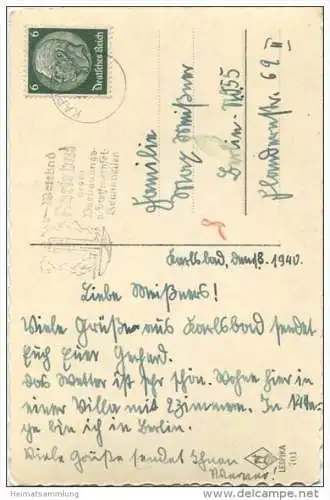 6 6
Deutsches Reich
KARL
Weltbad
Karlsbad
gegen
Verdauungs-
u. Stoffwechsel-
Krankheiten
Familie
Max Meißner
Berlin - NO55
69 II
Karlsbad, den 1.8. 1940.
Liebe Meißners!
Viele Grüße aus Karlsbad sendet
Euch Euer Gerhard.
Das Wetter ist sehr schön. Wohne hier in
einer Villa mit 2 Zimmern. In 14 Ta-
ge bin ich in Berlin.
Viele Grüße sendet Ihnen
Werner!
LEEPIKA
701
Heimatsammlung
www.delcampe.net